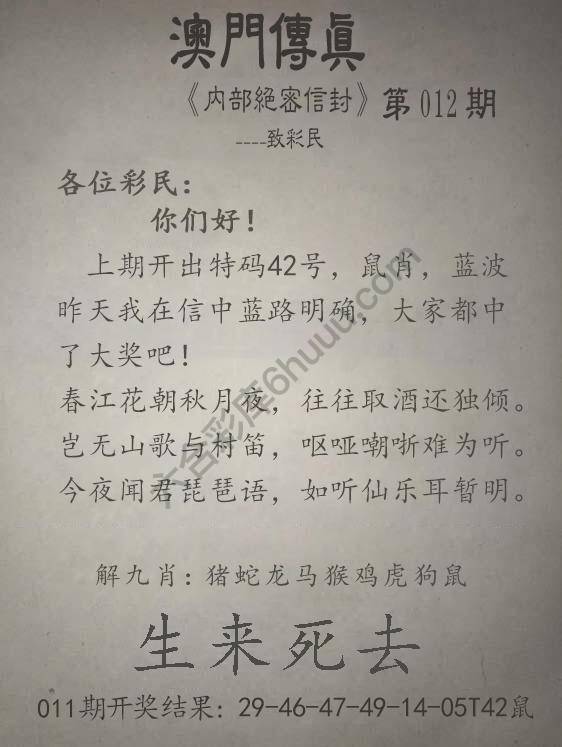 澳門傳眞
《内部絕密信封》第012期
----致彩民
各位彩民：
你们好！
上期开出特码42号，鼠肖，蓝波
昨天我在信中蓝路明确，大家都中
了大奖吧！
春江花朝秋月夜，往往取酒还独倾。
岂无山歌与村笛，呕哑嘲哳难为听。
今夜闻君琵琶语，如听仙乐耳暂明。
解九肖：猪蛇龙马猴鸡虎狗鼠
生来死去
011期开奖结果：29-46-47-49-14-05T42鼠
六合彩库6huuu.com